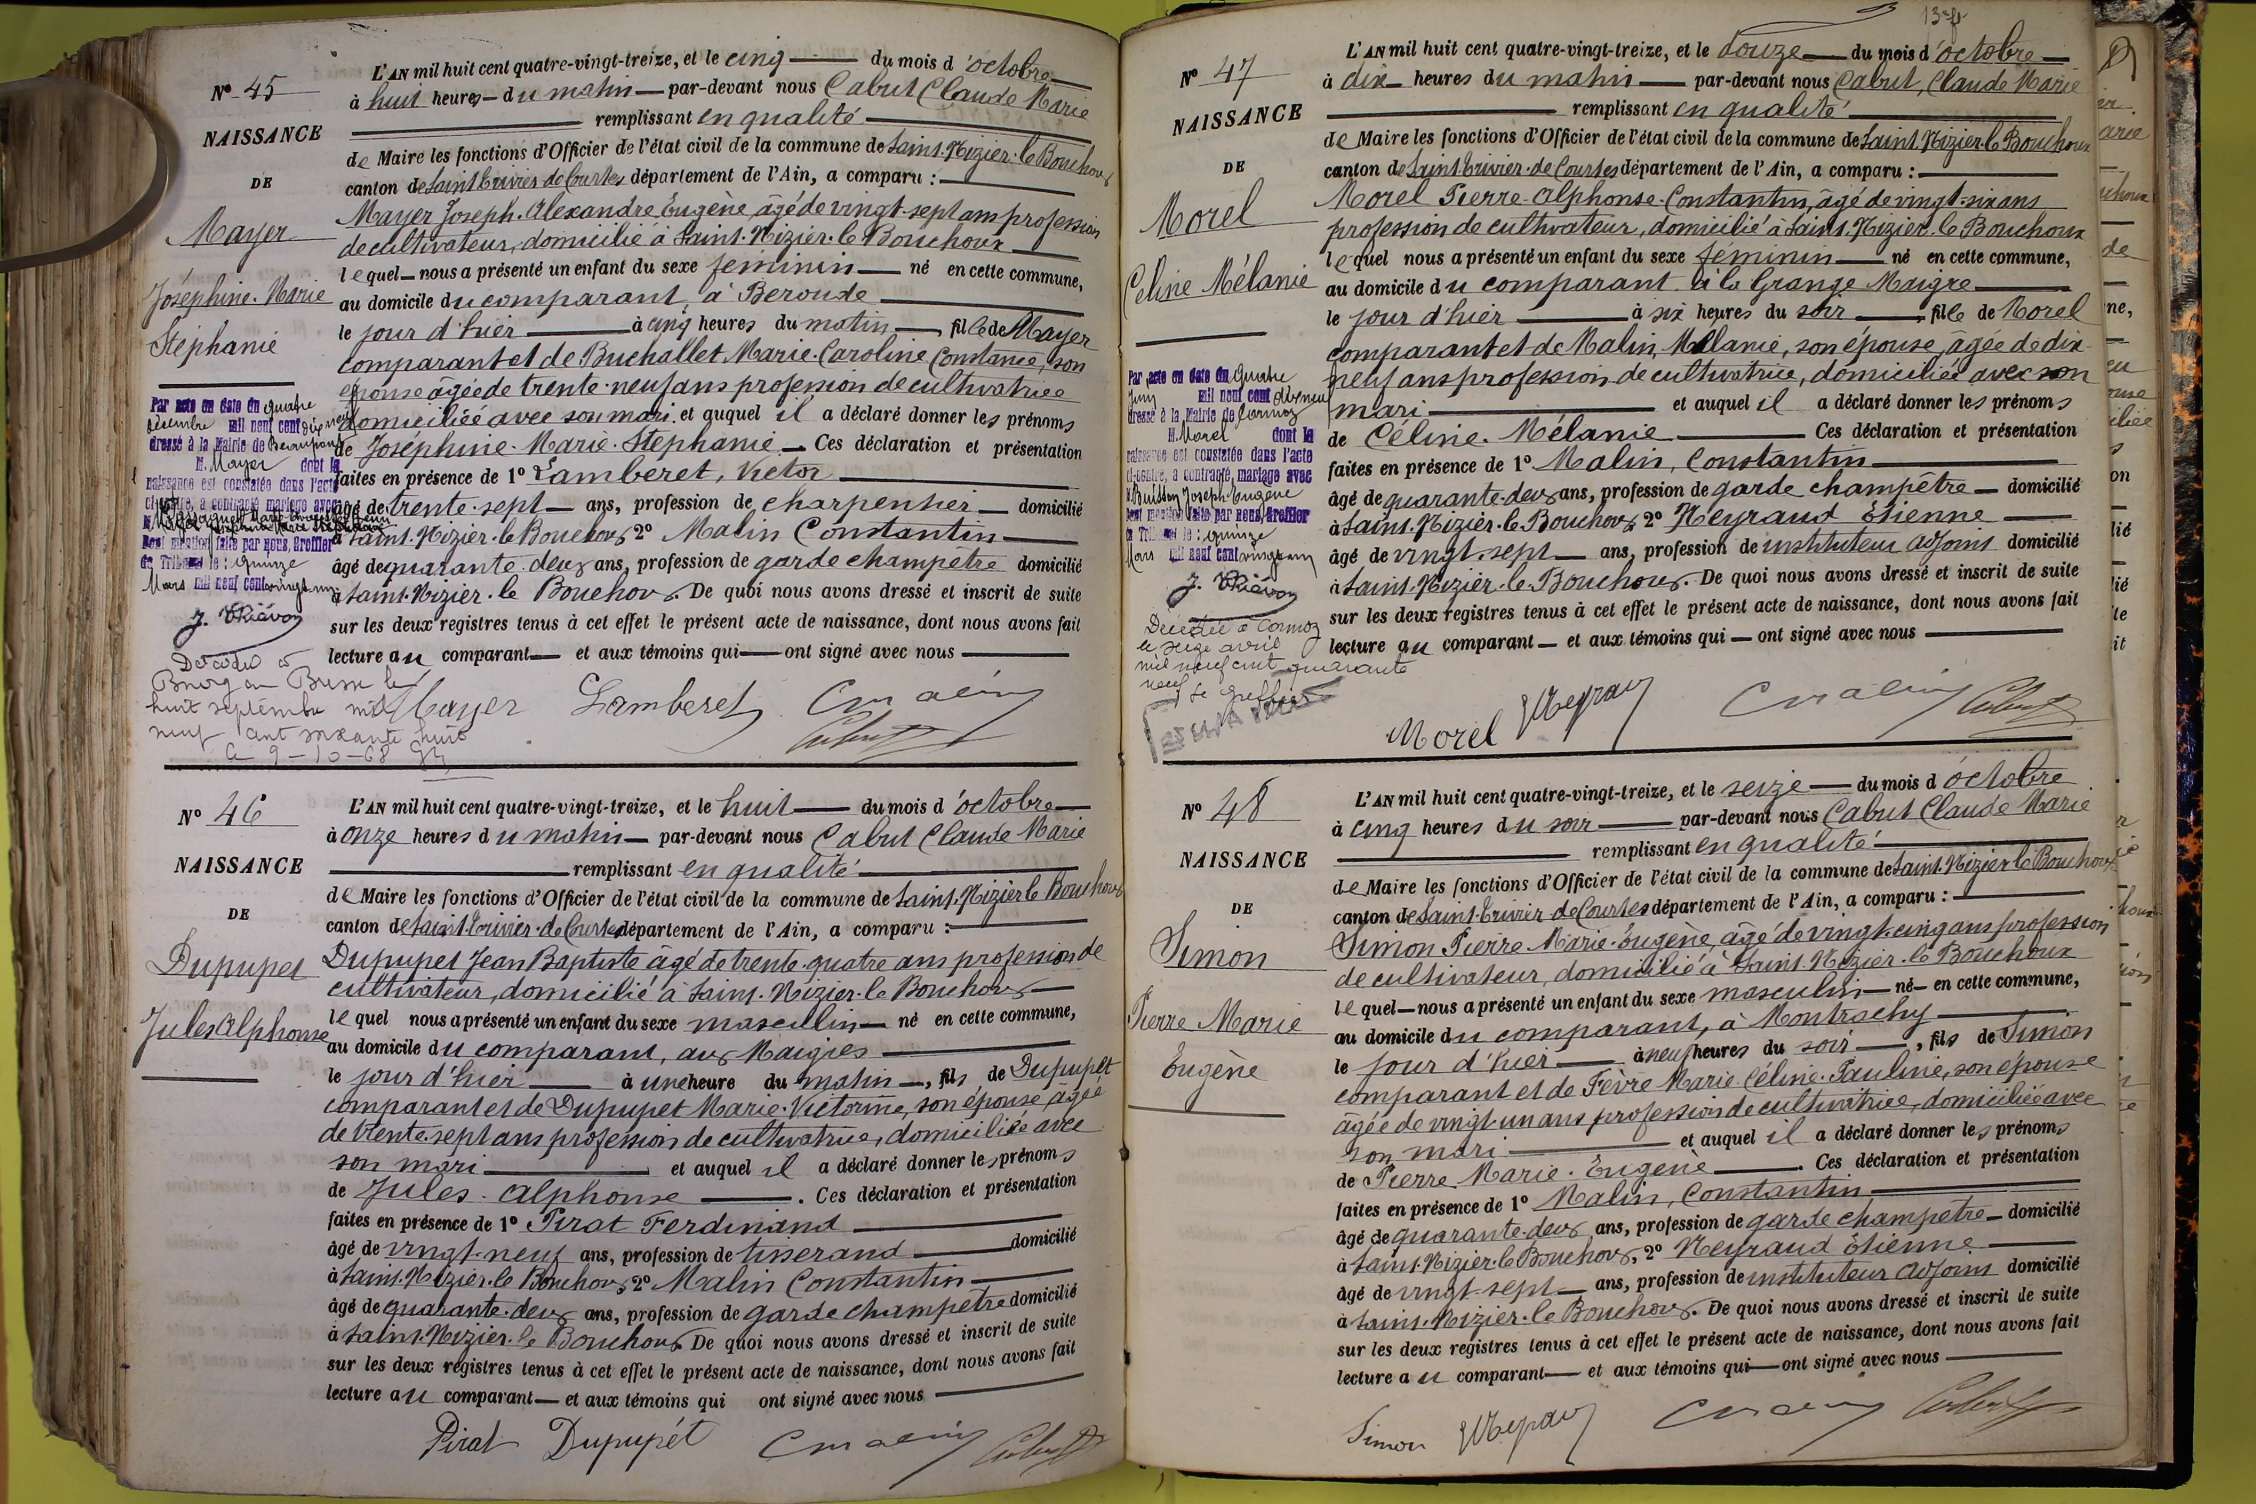 N° 45
NAISSANCE
DE
Mayer
Joséphine. Marie
Stéphanie
Par acte en date du quatre
décembre mil neuf cent dix neuf
dressé à la Mairie de Beaupont
M. Mayer dont la
naissance est constatée dans l'acte
ci-contre, a contracté mariage avec
Dont mention faite par nous, Greffier
du Tribunal le : quinze
Mars mil neuf cent vingt un
J. Thiévon
Décédée à
Bourg en Bresse le
huit septembre mil
neuf cent soixante huit
le 9-10-68
L'AN mil huit cent quatre-vingt-treize, et le cinq du mois d'octobre
à huit heures du matin par-devant nous Cabut Claude Marie
remplissant en qualité
de Maire les fonctions d'Officier de l'état civil de la commune de Saint. Nizier. le Bouchoux
canton de Saint Trivier de Courtes département de l'Ain, a comparu :
Mayer Joseph. Alexandre Eugène, âgé de vingt. sept ans profession
de cultivateur, domicilié à Saint. Nizier. le Bouchoux
lequel nous a présenté un enfant du sexe féminin né en cette commune,
au domicile du comparant, à Beroude
le jour d'hier à cinq heures du matin, fille de Mayer
comparant et de Buchallet Marie. Caroline Constance, son
épouse âgée de trente. neuf ans profession de cultivatrice
domiciliée avec son mari et auquel il a déclaré donner les prénoms
de Joséphine. Marie. Stéphanie. Ces déclaration et présentation
faites en présence de 1° Lamberet, Victor
âgé de trente. sept ans, profession de charpentier domicilié
à Saint. Nizier. le Bouchoux 2° Malin Constantin
âgé de quarante. deux ans, profession de garde champêtre domicilié
à Saint. Nizier. le Bouchoux. De quoi nous avons dressé et inscrit de suite
sur les deux registres tenus à cet effet le présent acte de naissance, dont nous avons fait
lecture au comparant et aux témoins qui ont signé avec nous
Mayer Lamberet C Malin
Cabut
N° 46
NAISSANCE
DE
Dupupet
Jules Alphonse
L'AN mil huit cent quatre-vingt-treize, et le huit du mois d'octobre
à onze heures du matin par-devant nous Cabut Claude Marie
remplissant en qualité
de Maire les fonctions d'Officier de l'état civil de la commune de Saint. Nizier le Bouchoux
canton de Saint. Trivier. de Courtes département de l'Ain, a comparu :
Dupupet Jean Baptiste âgé de trente. quatre ans profession de
cultivateur, domicilié à Saint. Nizier. le Bouchoux
lequel nous a présenté un enfant du sexe masculin né en cette commune,
au domicile du comparant, aux Maigres
le jour d'hier à une heure du matin, fils de Dupupet
comparant et de Dupupet Marie. Victorine, son épouse, âgée
de trente. sept ans profession de cultivatrice, domiciliée avec
son mari et auquel il a déclaré donner les prénoms
de Jules. Alphonse. Ces déclaration et présentation
faites en présence de 1° Pirat Ferdinand
âgé de vingt. neuf ans, profession de tisserand domicilié
à Saint. Nizier. le Bouchoux 2° Malin Constantin
âgé de quarante. deux ans, profession de garde champêtre domicilié
à Saint. Nizier. le Bouchoux De quoi nous avons dressé et inscrit de suite
sur les deux registres tenus à cet effet le présent acte de naissance, dont nous avons fait
lecture au comparant et aux témoins qui ont signé avec nous
Pirat Dupupét C Malin Cabut
N° 47
NAISSANCE
DE
Morel
Céline Mélanie
Par acte en date du quatre
Juin mil neuf cent
dressé à la Mairie de Cormoz
M. Morel dont la
naissance est constatée dans l'acte
ci-contre, a contracté mariage avec
Buisson Joseph. Eugène
Dont mention faite par nous, Greffier
du Tribunal le : quinze
Mars mil neuf cent vingt un
J. Thiévon
Décédée à Cormoz
le seize avril
mil neuf cent quarante
neuf
Le Greffier
L'AN mil huit cent quatre-vingt-treize, et le douze du mois d'octobre
à dix heures du matin par-devant nous Cabut, Claude Marie
remplissant en qualité
de Maire les fonctions d'Officier de l'état civil de la commune de Saint. Nizier. le Bouchoux
canton de Saint. Trivier. de Courtes département de l'Ain, a comparu :
Morel Pierre. Alphonse. Constantin, âgé de vingt. six ans
profession de cultivateur, domicilié à Saint. Nizier. le Bouchoux
lequel nous a présenté un enfant du sexe féminin né en cette commune,
au domicile du comparant à la Grange Maigre
le jour d'hier à six heures du soir, fille de Morel
comparant et de Malin, Mélanie, son épouse, âgée de dix-
neuf ans profession de cultivatrice, domiciliée avec son
mari et auquel il a déclaré donner les prénoms
de Céline. Mélanie Ces déclaration et présentation
faites en présence de 1° Malin, Constantin
âgé de quarante. deux ans, profession de garde champêtre domicilié
à Saint. Nizier. le Bouchoux 2° Neyraud Etienne
âgé de vingt. sept ans, profession de instituteur adjoint domicilié
à Saint. Nizier. le Bouchoux. De quoi nous avons dressé et inscrit de suite
sur les deux registres tenus à cet effet le présent acte de naissance, dont nous avons fait
lecture au comparant et aux témoins qui ont signé avec nous
Morel Neyraud C Malin Cabut
N° 48
NAISSANCE
DE
Simon
Pierre Marie
Eugène
L'AN mil huit cent quatre-vingt-treize, et le seize du mois d'octobre
à cinq heures du soir par-devant nous Cabut Claude Marie
remplissant en qualité
de Maire les fonctions d'Officier de l'état civil de la commune de Saint. Nizier le Bouchoux
canton de Saint. Trivier de Courtes département de l'Ain, a comparu :
Simon Pierre Marie. Eugène, âgé de vingt. cinq ans profession
de cultivateur, domicilié à Saint. Nizier. le Bouchoux
lequel nous a présenté un enfant du sexe masculin né en cette commune,
au domicile du comparant, à Montrachy
le jour d'hier à neuf heures du soir, fils de Simon
comparant et de Fèvre Marie. Céline. Pauline, son épouse
âgée de vingt un ans profession de cultivatrice, domiciliée avec
son mari et auquel il a déclaré donner les prénoms
de Pierre. Marie. Eugène. Ces déclaration et présentation
faites en présence de 1° Malin, Constantin
âgé de quarante. deux ans, profession de garde champêtre domicilié
à Saint. Nizier. le Bouchoux, 2° Neyraud Etienne
âgé de vingt. sept ans, profession de instituteur adjoint domicilié
à Saint. Nizier. le Bouchoux. De quoi nous avons dressé et inscrit de suite
sur les deux registres tenus à cet effet le présent acte de naissance, dont nous avons fait
lecture au comparant et aux témoins qui ont signé avec nous
Simon Neyraud C Malin Cabut